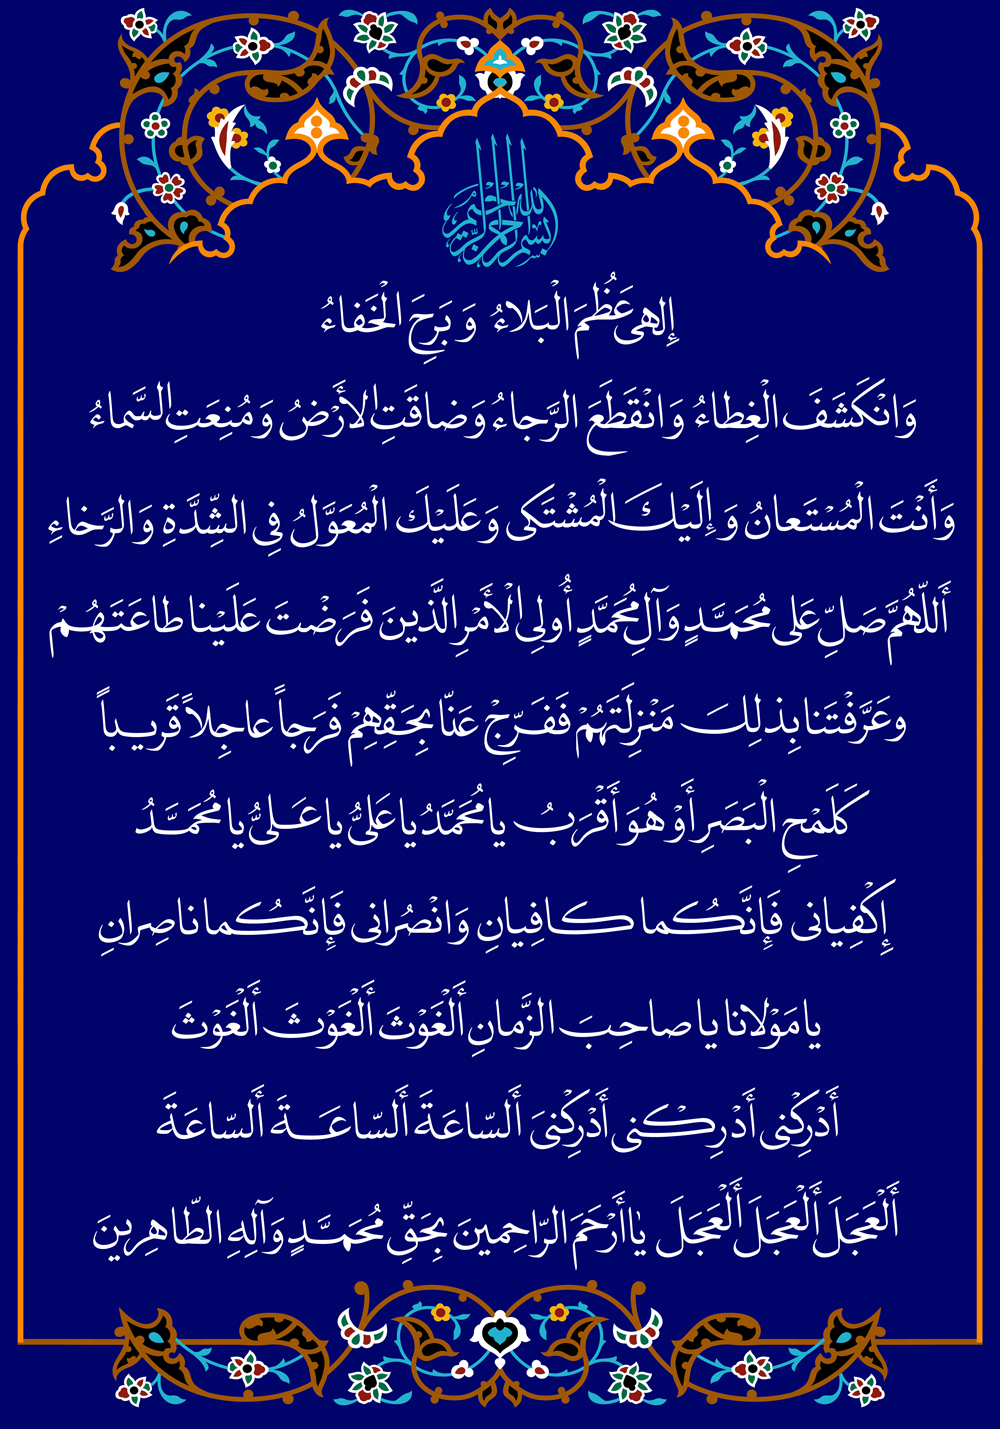 بسم الله الرحمن الرحیم
إِلهی عَظُمَ الْبَلاءُ وَ بَرِحَ الْخَفاءُ
وَانْکَشَفَ الْغِطاءُ وَانْقَطَعَ الرَّجاءُ وَضاقَتِ الاَْرْضُ وَمُنِعَتِ السَّماءُ
وَأَنْتَ الْمُسْتَعانُ وَإِلَیْكَ الْمُشْتَکی وَعَلَیْكَ الْمُعَوَّلُ فِی الشِّدَّةِ وَالرَّخاءِ
أَللّهُمَّ صَلِّ عَلی مُحَمَّدٍ وَآلِ مُحَمَّدٍ أُولِی الْأَمْرِ الَّذینَ فَرَضْتَ عَلَیْنا طاعَتَهُمْ
وعَرَّفْتَنا بِذلِكَ مَنْزِلَتَهُمْ فَفَرِّجْ عَنّا بِحَقِّهِمْ فَرَجاً عاجِلاً قَریباً
کَلَمْحِ الْبَصَرِ أَوْ هُوَ أَقْرَبُ یا مُحَمَّدُ یا عَلیُّ یا عَلیُّ یا مُحَمَّدُ
إِکْفِیانی فَإِنَّکُما کافِیانِ وَانْصُرانی فَإِنَّکُما ناصِرانِ
یا مَوْلانا یا صاحِبَ الزَّمانِ أَلْغَوْثَ أَلْغَوْثَ أَلْغَوْثَ
أَدْرِکْنی أَدْرِکْنی أَدْرِکْنیَ أَلسّاعَةَ أَلسّاعَةَ أَلسّاعَةَ
أَلْعَجَلَ أَلْعَجَلَ أَلْعَجَلَ یا أَرْحَمَ الرّاحِمینَ بِحَقِّ مُحَمَّدٍ وَآلِهِ الطّاهِرینَ